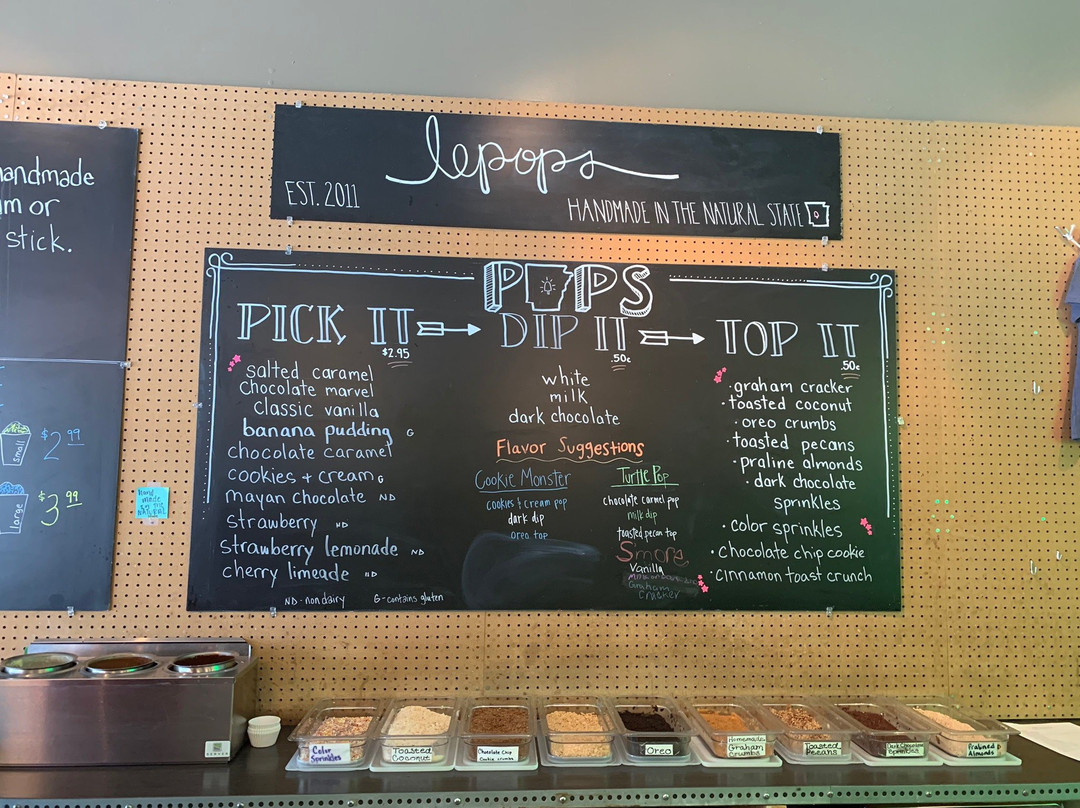 lepops
EST. 2011
HANDMADE IN THE NATURAL STATE
andmade
m or
stick.
small
$2.99
large
$3.99
POPS
PICK IT
$2.95
salted caramel
chocolate marvel
classic vanilla
banana pudding G
chocolate caramel
cookies + cream G
mayan chocolate ND
strawberry ND
strawberry lemonade ND
cherry limeade ND
ND - non dairy G - contains gluten
DIP IT
.50¢
white
milk
dark chocolate
Flavor Suggestions
Cookie Monster
cookies & cream pop
dark dip
oreo top
Turtle Pop
chocolate carmel pop
milk dip
toasted pecan top
Smore
Vanilla
Graham
Cracker
TOP IT
.50¢
· graham cracker
· toasted coconut
· oreo crumbs
· toasted pecans
· praline almonds
· dark chocolate
sprinkles
· color sprinkles
· chocolate chip cookie
· cinnamon toast crunch
Hand
made
in the
NATURAL
Color
Sprinkles
Toasted
Coconut
Chocolate Chip
Cookie crumbs
Oreo
Homemade
Graham
Crumbs
Toasted
Pecans
Dark Chocolate
Sprinkles
Pralined
Almonds